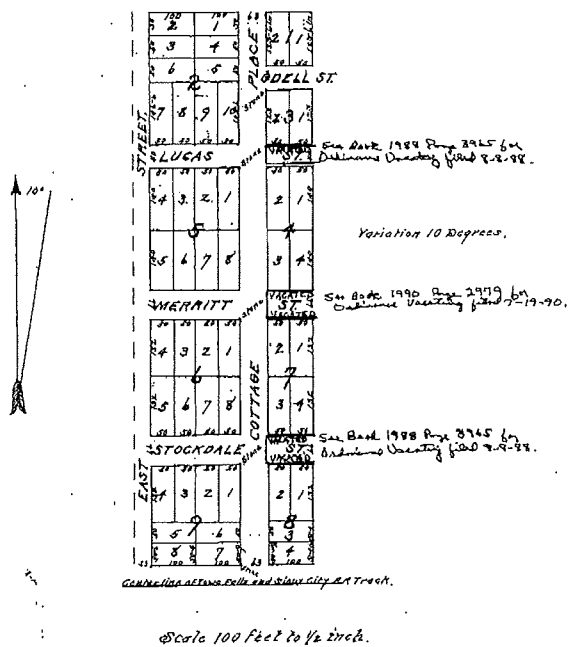 100 100
2 1
3 4
6 5
2
7 8 9 10
PLACE
2 1
1
ODELL ST.
2 3 1
STREET
LUCAS
VACATED
ST.
See Book 1988 Page 3965 for
Ordinance Vacating filed 8-8-88.
10°
4 3 2 1
5
5 6 7 8
2 1
4
3 4
Variation 10 Degrees.
MERRITT
VACATED
ST.
VACATED
See Book 1990 Page 2979 for
Ordinance Vacating filed 7-19-90.
4 3 2 1
6
5 6 7 8
COTTAGE
2 1
7
3 4
STOCKDALE
VACATED
ST.
VACATED
See Book 1988 Page 3965 for
Ordinance Vacating filed 8-8-88.
EAST
4 3 2 1
9
5 6
8 7
100 100
2 1
8
3
4
100
63
Centerline of Iowa Falls and Sioux City RR Track.
Scale 100 Feet to 1/2 inch.